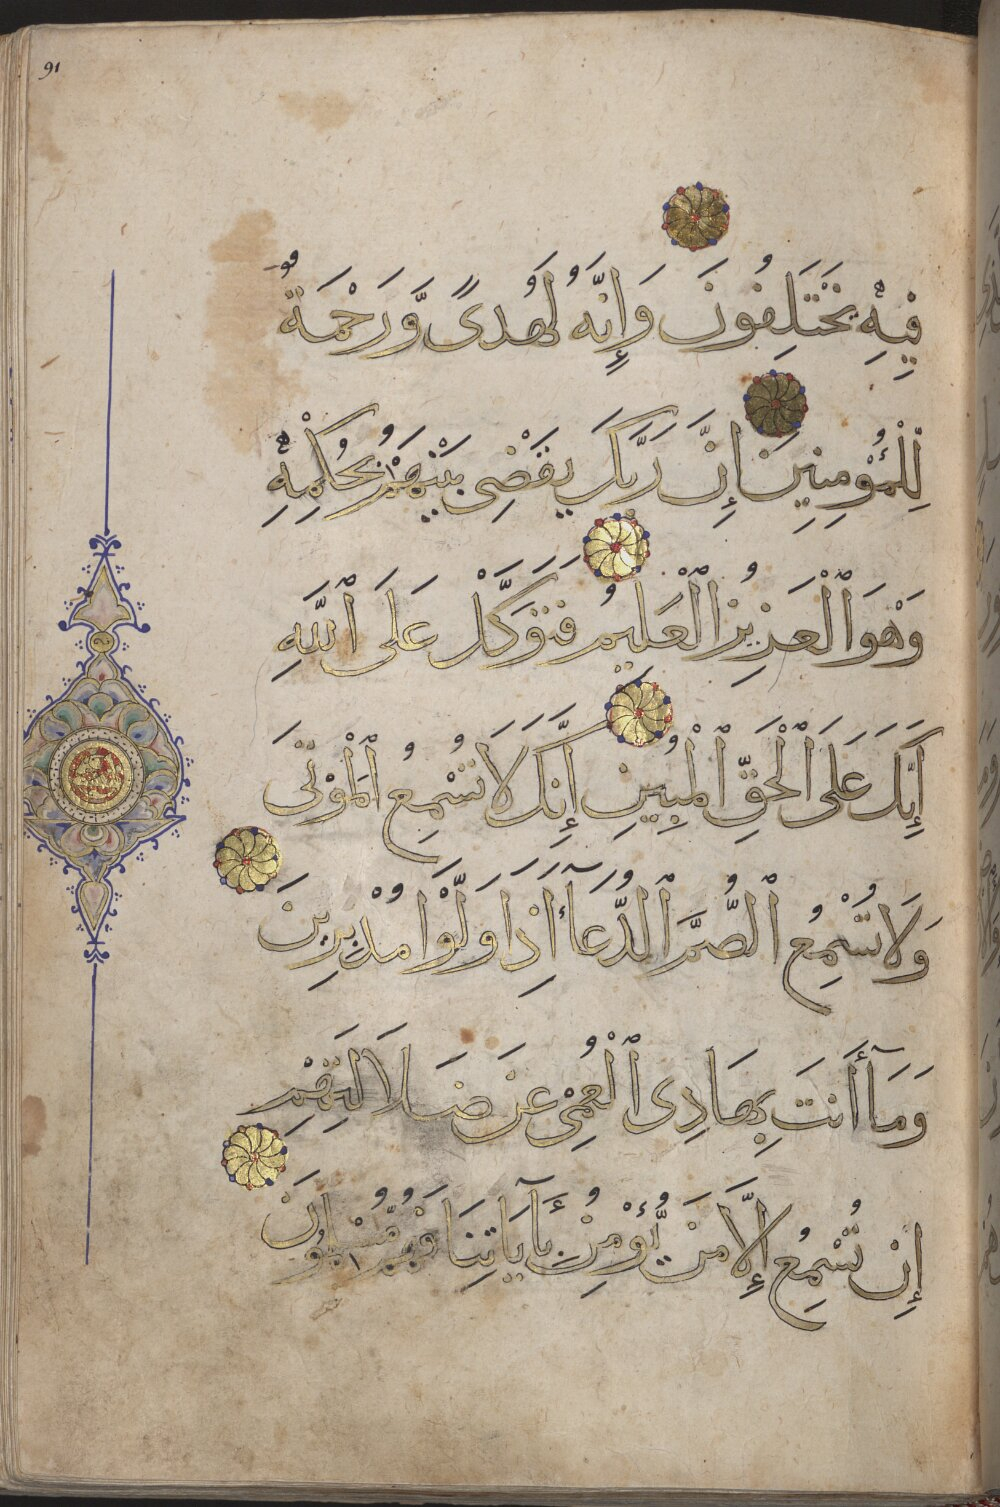 91
فِيهِ يَخْتَلِفُونَ وَإِنَّهُ لَهُدًى وَّرَحْمَةٌ
لِّلْمُؤْمِنِينَ إِنَّ رَبَّكَ يَقْضِى بَيْنَهُمْ بِحُكْمِهِ
وَهْوَ ٱلْعَزِيزُ ٱلْعَلِيمُ فَتَوَكَّلْ عَلَى ٱللَّهِ
إِنَّكَ عَلَى ٱلْحَقِّ ٱلْمُبِينِ إِنَّكَ لَا تُسْمِعُ ٱلْمَوْتَى
وَلَا تُسْمِعُ ٱلصُّمَّ ٱلدُّعَآءَ إِذَا وَلَّوْا مُدْبِرِينَ
وَمَآ أَنتَ بِهَادِى ٱلْعُمْىِ عَن ضَلَالَتِهِمْ
إِن تُسْمِعُ إِلَّا مَن يُّؤْمِنُ بِـَٔايَاتِنَا فَهُم مُّسْلِمُونَ